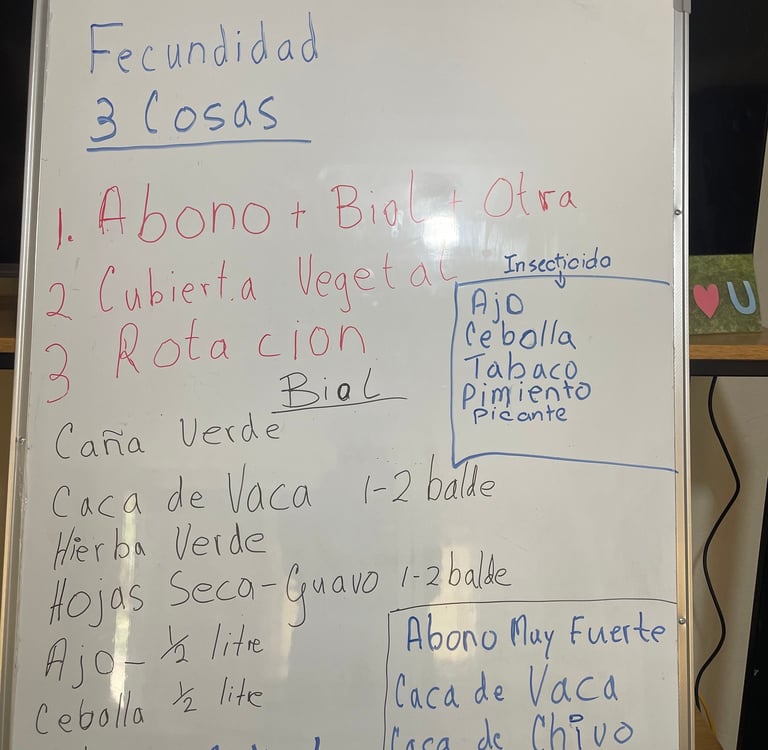 Fecundidad
3 Cosas
1. Abono + Bial + Otra
2 Cubierta Vegetal
3 Rotacion
Insecticido
Ajo
Cebolla
Tabaco
Pimiento
Picante
Bial
Caña Verde
Caca de Vaca 1-2 balde
Hierba Verde
Hojas Seca-Guavo 1-2 balde
Ajo- 1/2 litre
Cebolla 1/2 litre
Abono Muy Fuerte
Caca de Vaca
Caca de Chivo
U